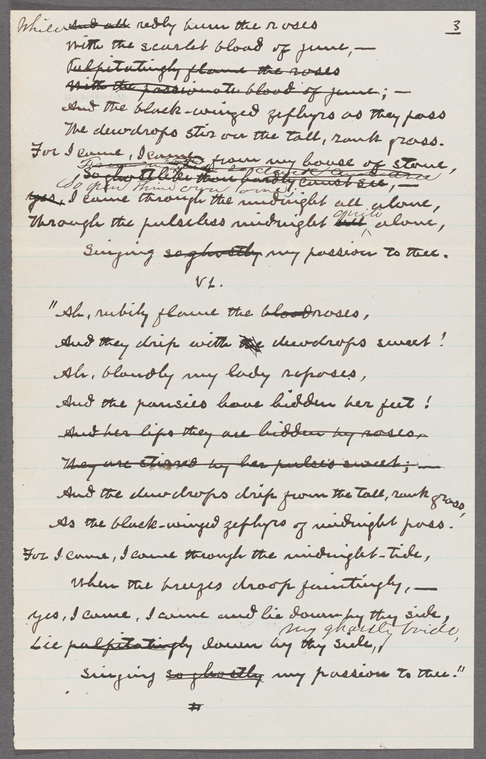 3
While And all redly burn the roses
With the scarlet blood of June,—
Palpitatingly flame the roses
With the passionate blood of June;—
And the black-winged zephyrs as they pass
The dewdrops stir on the tall, rank grass.
For I come, I come from my house of stone,
So ghostlike thou hardly canst see,—
So open thine own
yes, I come through the midnight all alone,
Through the pulseless midnight all quite alone,
Singing so ghostly my passion to thee.
VI.
"Ah, rubily flame the blood roses,
And they drip with the dewdrops sweet!
Ah, blandly my lady reposes,
And the pansies have hidden her feet!
And her lips they are hidden by roses,
They are stirred by her pulses sweet;—
And the dewdrops drip from the tall, rank grass,
As the black-winged zephyrs of midnight pass.
For I come, I come through the midnight-tide,
When the breezes droop faintingly,—
yes, I come, I come and lie down by thy side,
my ghastly bride,
Lie palpitatingly down by thy side,
Singing so ghostly my passion to thee."
#